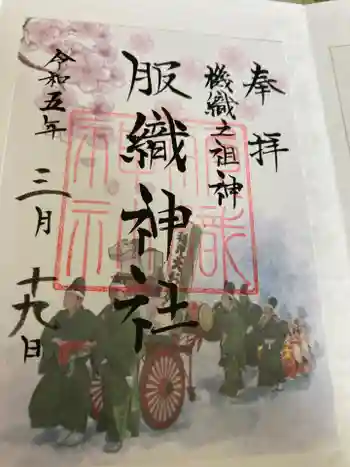 奉拝
機織之祖神
服織神社
令和五年 三月 十九日